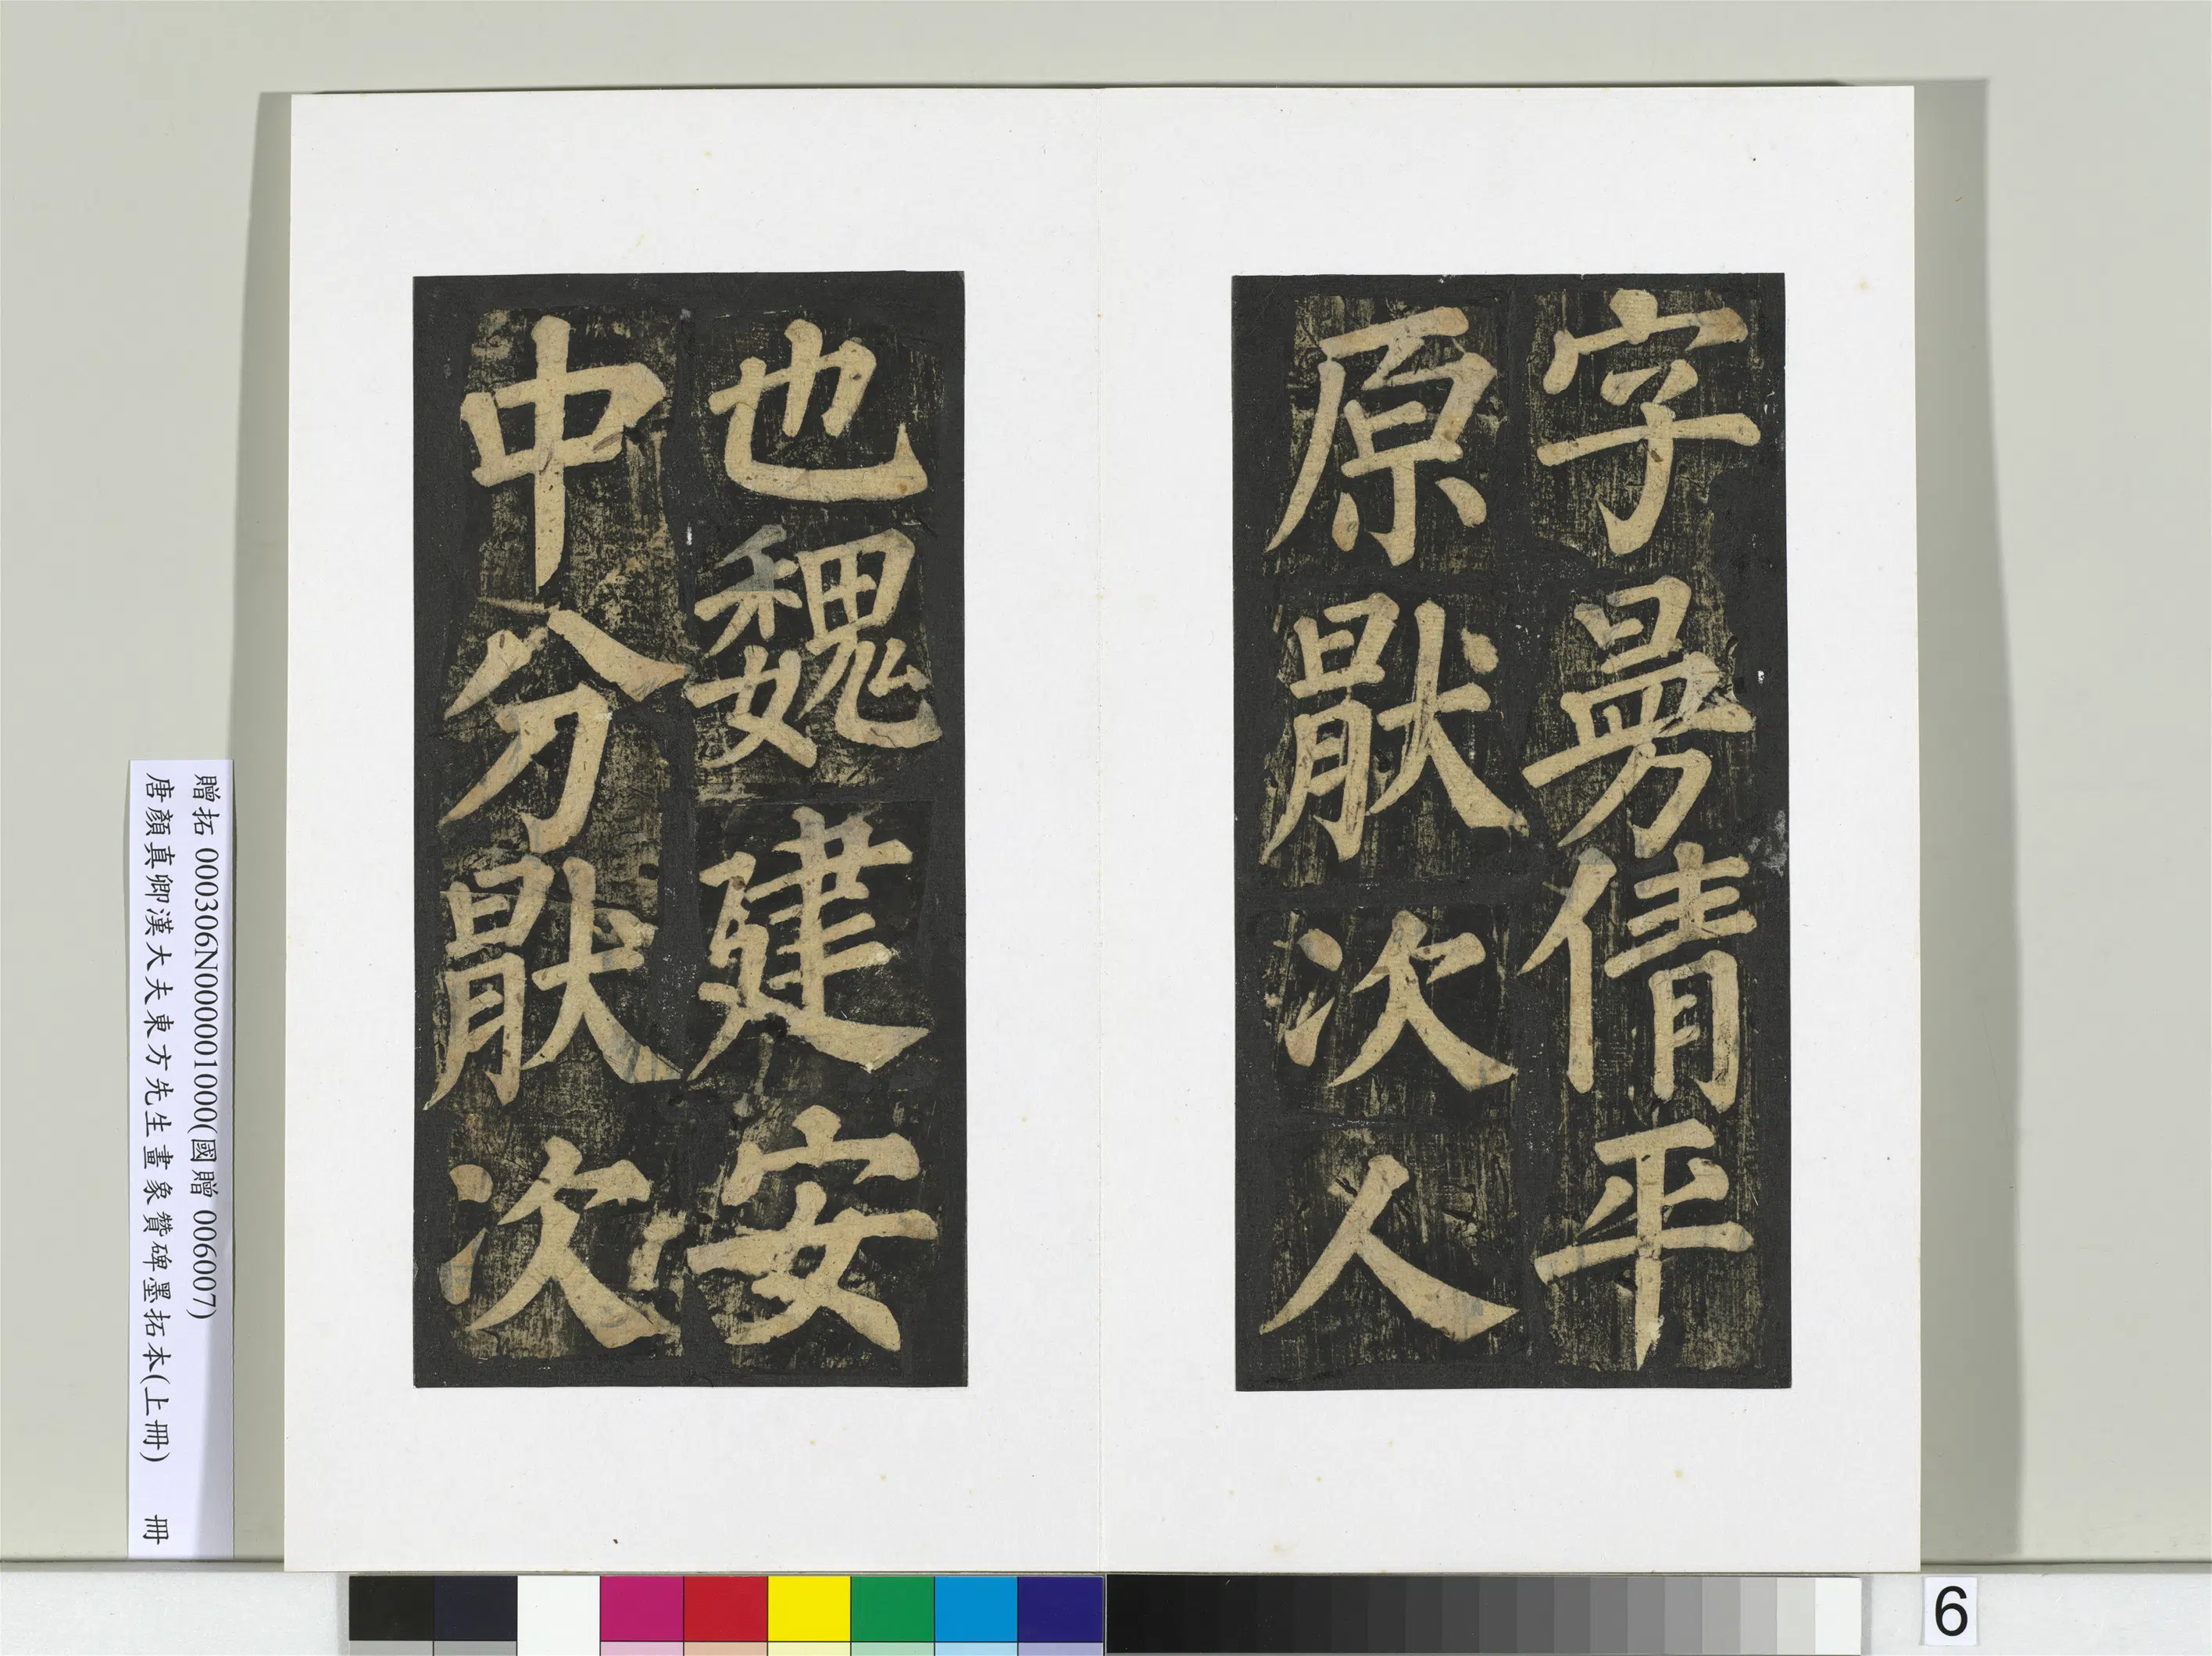 字曼倩平
原猒次人
也魏建安
中分猒次
贈拓 000306N000001000(國贈 006007)
唐顏真卿漢大夫東方先生畫象贊碑墨拓本(上冊) 冊
6